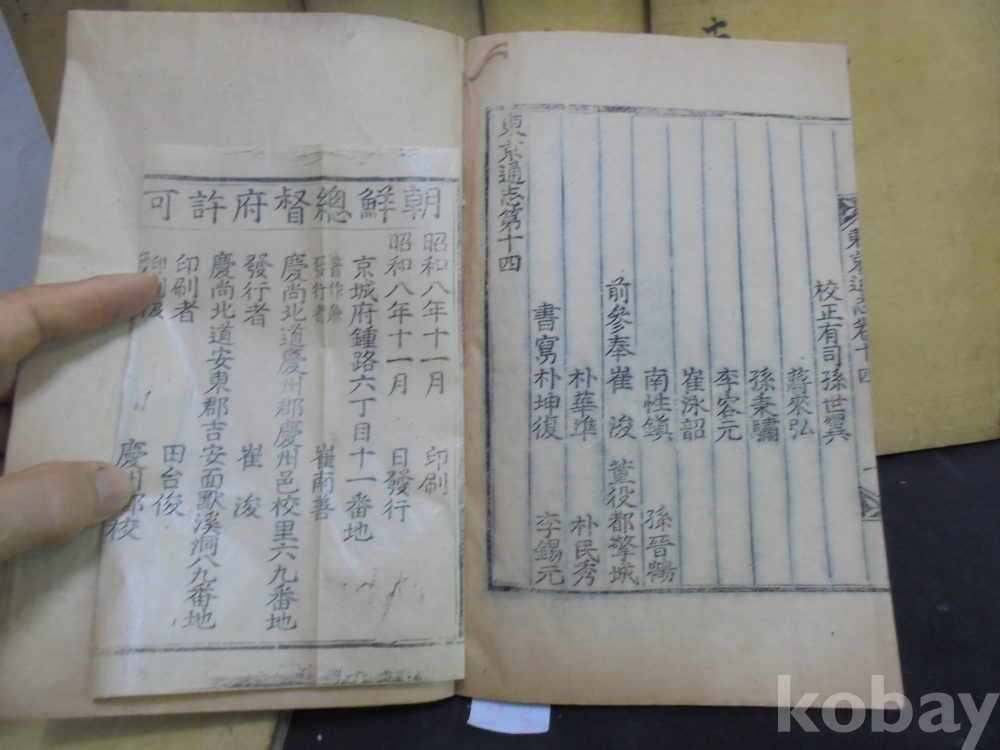 東京通志卷十四
校正有司孫世翼
蔣來
孫秉驌
李容元
崔泳韶
南性鎮 孫晉
前參奉崔浚 董役都擎城
朴華準 朴民秀
書寫朴坤復 李錫元
東京通志第十四
朝鮮總督府許可
昭和八年十一月 印刷
昭和八年十一月 日發行
京城府鍾路六丁目十一番地
著作兼發行者 崔南善
慶尚北道慶州郡慶州邑校里六九番地
發行者 崔浚
慶尚北道安東郡吉安面默溪洞八九番地
印刷者 田台俊
印刷
慶州鄉校
kobay